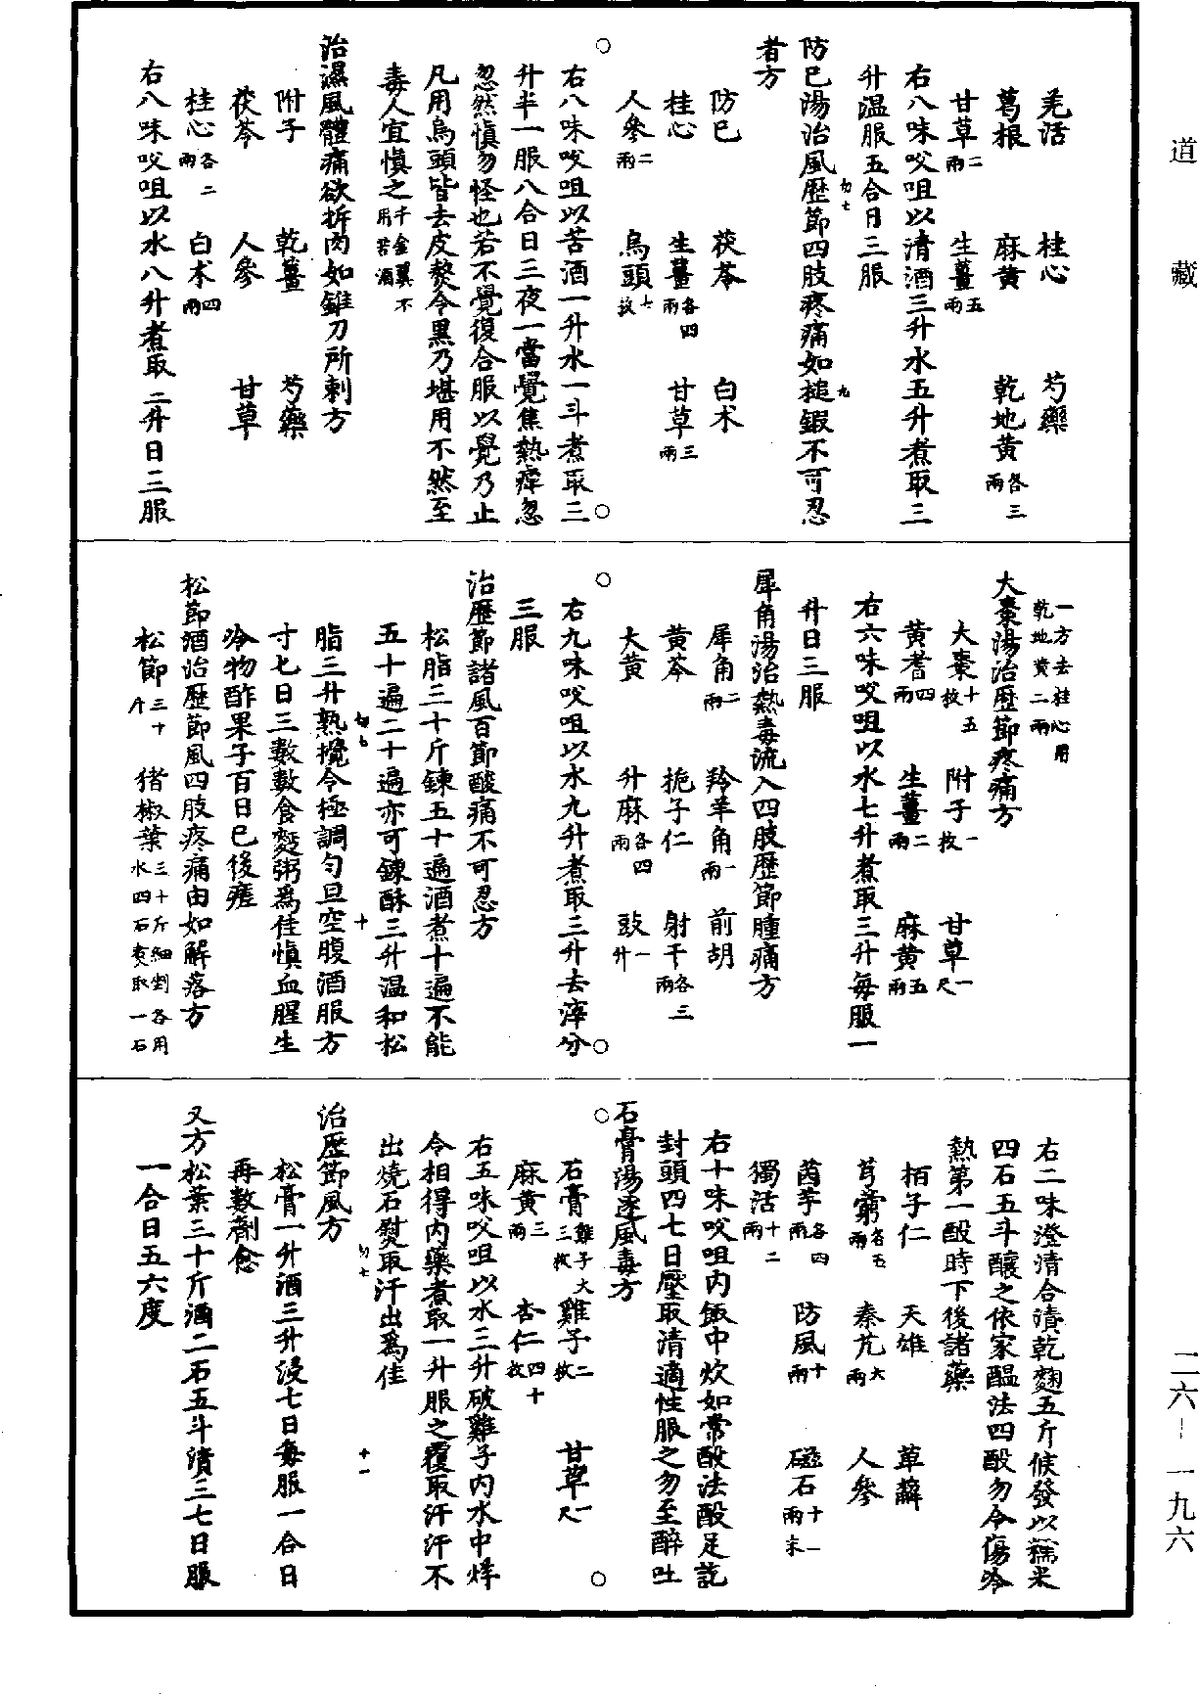 道藏
羌活　桂心　芍藥
葛根　麻黄　乾地黄各三兩
甘草二兩　生薑五兩
右八味㕮咀以清酒三升水五升煮取三
升温服五合日三服
防巳湯治風歷節四肢疼痛如槌鍜不可忍
者方
防巳　茯苓　白术
桂心　生薑各四兩　甘草三兩
人參二兩　烏頭七枚
右八味㕮咀以苦酒一升水一斗煮取三
升半一服八合日三夜一當覺焦熱痺忽
忽然慎勿怪也若不覺復合服以覺乃止
凡用烏頭皆去皮熬令黑乃堪用不然至
毒人宜慎之千金翼不用苦酒
治濕風體痛欲折肉如錐刀所刺方
附子　乾薑　芍藥
茯苓　人參　甘草
桂心各二兩　白术四兩
右八味㕮咀以水八升煮取二升日三服
一方去桂心用乾地黄二兩
大棗湯治歷節疼痛方
大棗十五枚　附子一枚　甘草一尺
黄耆四兩　生薑二兩　麻黄五兩
右六味㕮咀以水七升煮取三升每服一
升日三服
犀角湯治熱毒流入四肢歷節腫痛方
犀角二兩　羚羊角一兩　前胡
黄芩　梔子仁　射干各三兩
大黄　升麻各四兩　豉一升
右九味㕮咀以水九升煮取三升去滓分
三服
治歷節諸風百節酸痛不可忍方
松脂三十斤鍊五十遍酒煮十遍不能
五十遍二十遍亦可鍊酥三升温和松
脂三升熟攪令極調勻旦空腹酒服方
寸七日三數數食麫粥爲佳慎血腥生
冷物酢果子百日巳後瘥
松節酒治歷節風四肢疼痛由如解落方
松節三十斤　猪椒葉三十斤細剉各用水四石煑取一石
右二味澄清合漬乾麴五斤候發以糯米
四石五斗釀之依家醖法四酘勿令傷冷
熱第一酘時下後諸藥
栢子仁　天雄　萆薢
芎藭各五兩　秦艽六兩　人參
茵芋各四兩　防風十兩　磁石十一兩末
獨活十二兩
右十味㕮咀内飯中炊如常酘法酘足訖
封頭四七日壓取清適性服之勿至醉吐
石膏湯逐風毒方
石膏雞子大三枚　雞子二枚　甘草一尺
麻黄三兩　杏仁四十枚
右五味㕮咀以水三升破雞子内水中烊
令相得内藥煮取一升服之覆取汗汗不
出燒石熨取汗出爲佳
治歷節風方
松膏一升酒三升浸七日每服一合日
再數劑愈
又方松葉三十斤酒二石五斗漬三七日服
一合日五六度
二六－一九六